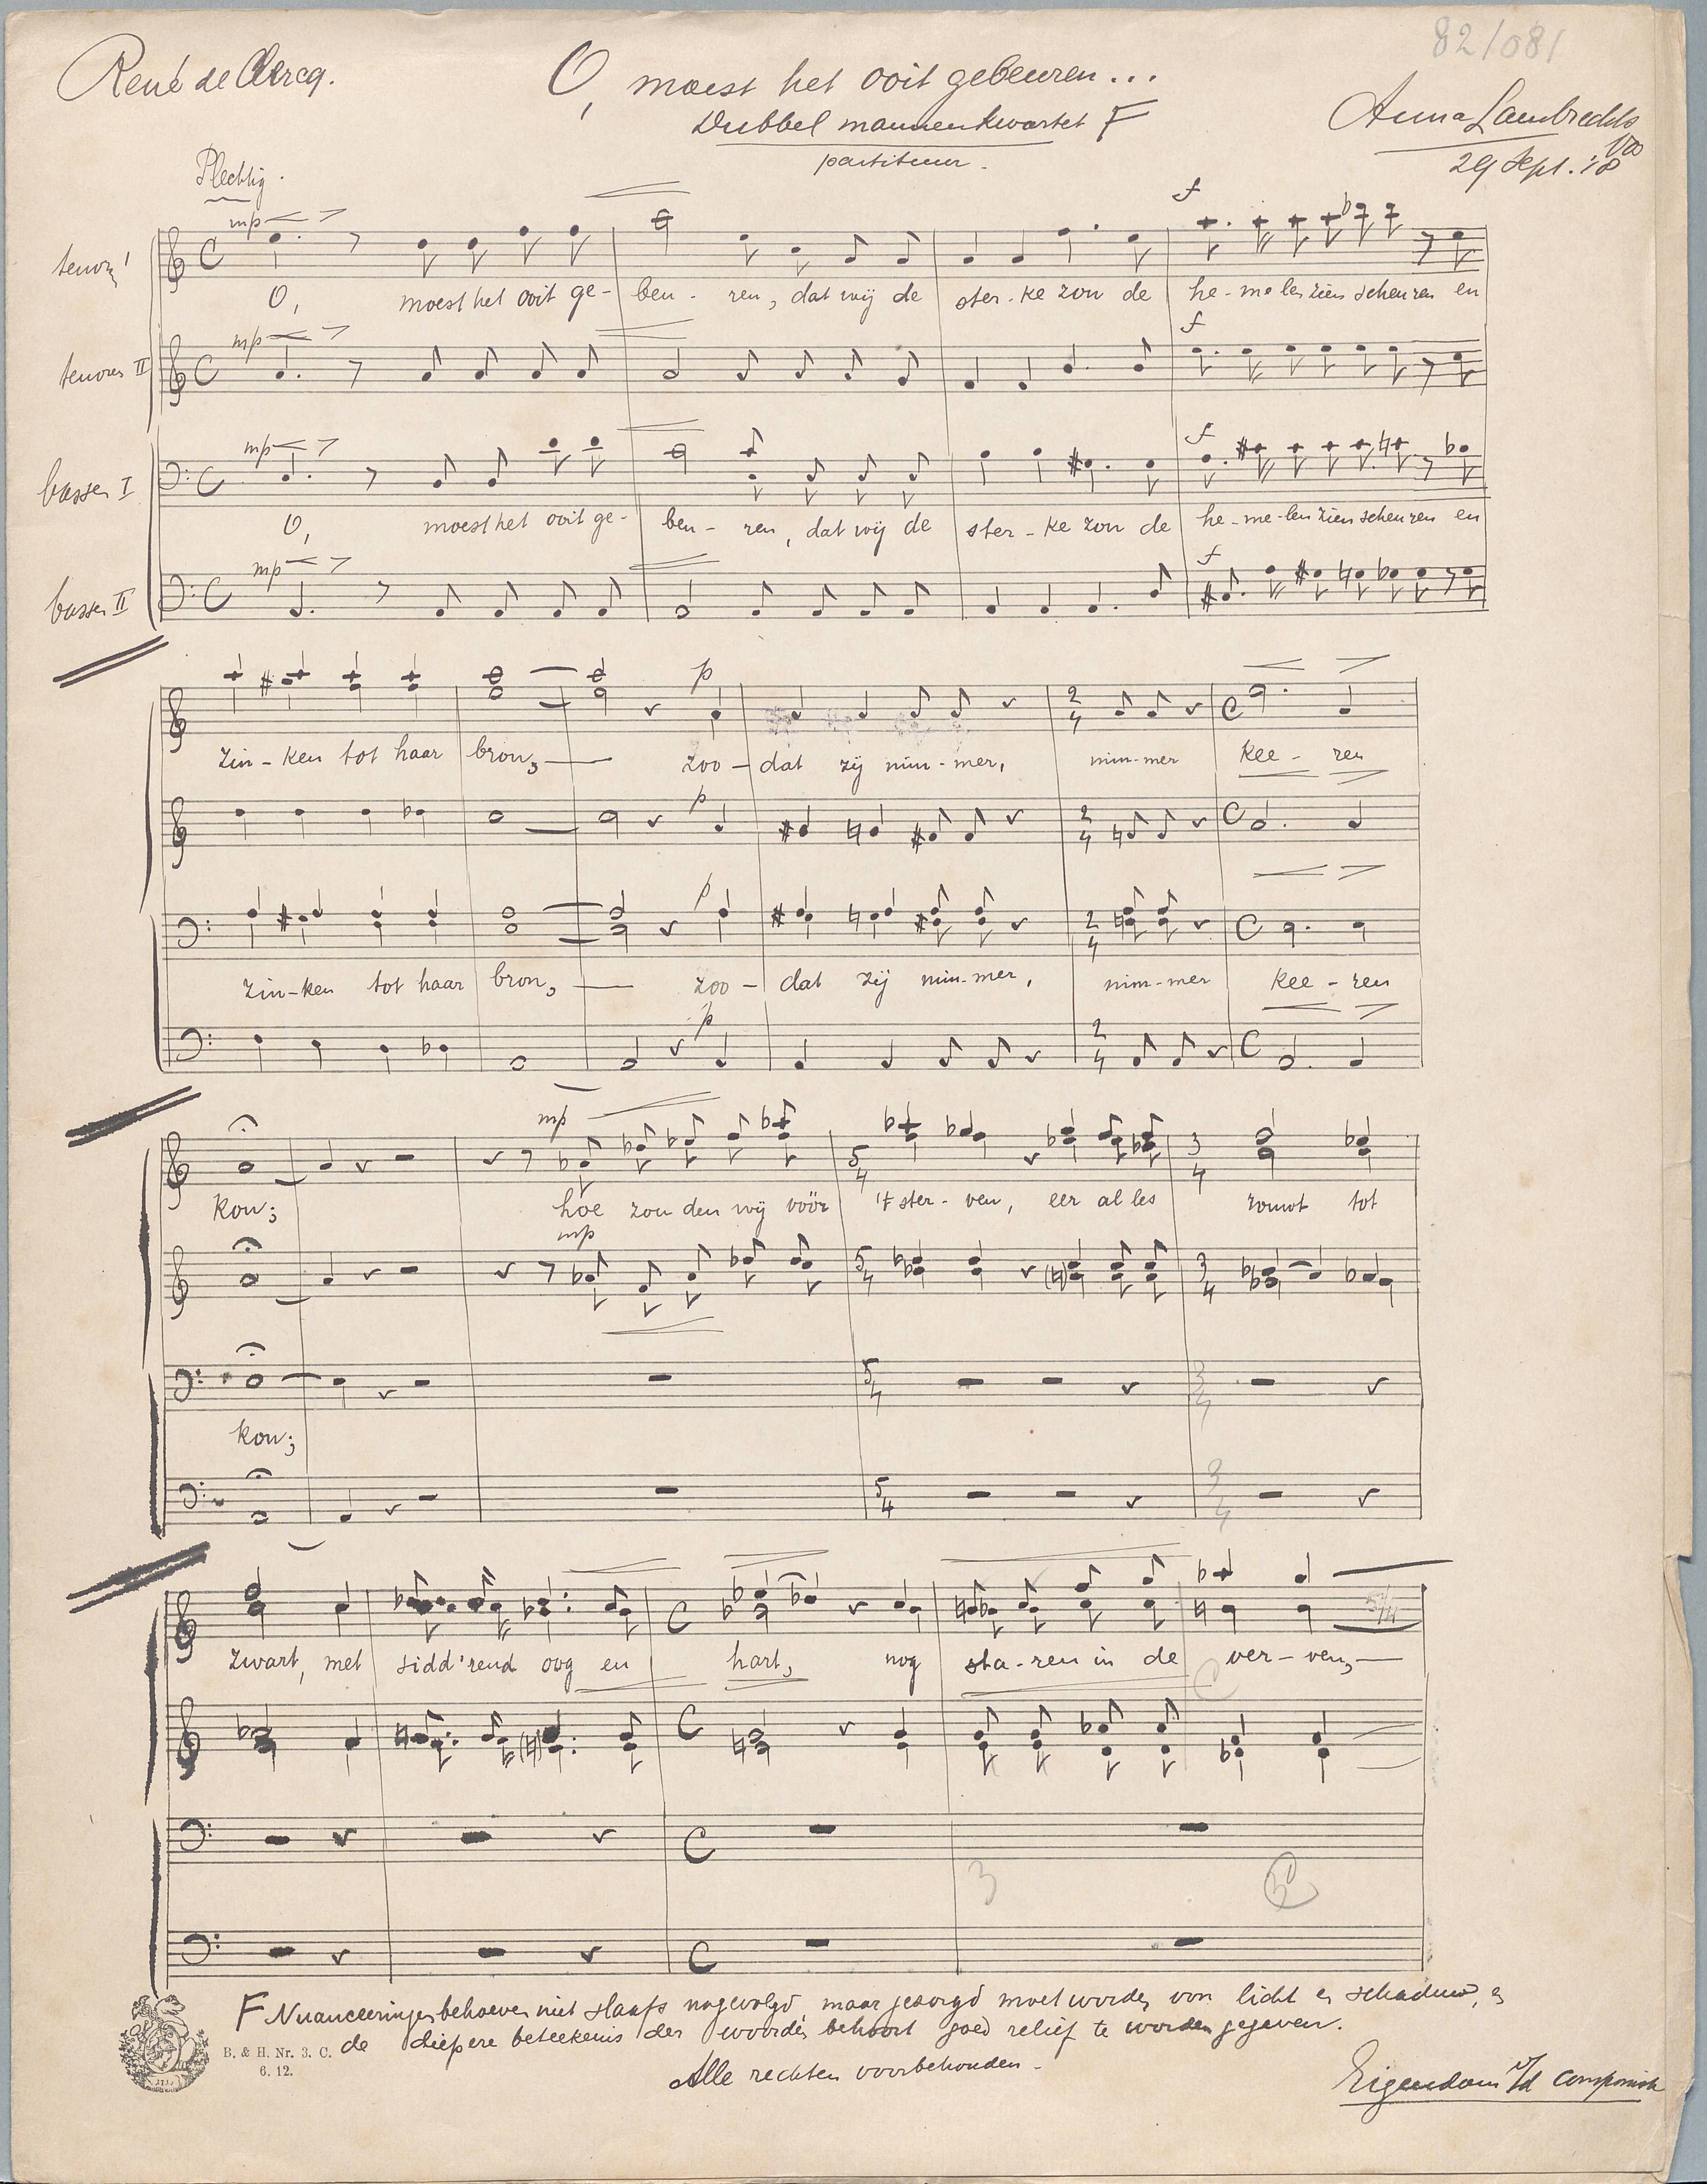 82/081
René de Clercq.
O, moest het ooit gebeuren...
Dubbel mannenkwartet F
partituur.
Anna Lambrechts
29 Sept. '18
Plechtig.
mp
f
tenors I
O, moest het ooit ge- beu- ren, dat wij de ster- ke zon de he- me len zien scheuren en
mp
f
tenoren II
mp
f
bassen I
O, moest het ooit ge- beu- ren, dat wij de ster- ke zon de he- me- len zien scheuren en
mp
f
bassen II
p
2/4
zin- ken tot haar bron, zoo- dat zij nim- mer, nim- mer kee- ren
p
2/4
p
2/4
zin- ken tot haar bron, zoo- dat zij nim- mer, nim- mer kee- ren
p
2/4
mp
5/4 3/4
kon; hoe zou den wij vóór 't ster- ven, eer al les zomt tot
mp
5/4 3/4
5/4 3/4
kon;
5/4 3/4
zwart, met sidd'rend oog en hart, nog sta- ren in de ver- ven,
3
F Nuanceeringen behoeven niet slaafs nagevolgd, maar gezorgd moet worden von licht en schaduw, en
de diepere beteekenis der woorden behoort goed relief te worden gegeven.
B. & H. Nr. 3. C.
6. 12.
Alle rechten voorbehouden.
Eigendom v/d componiste